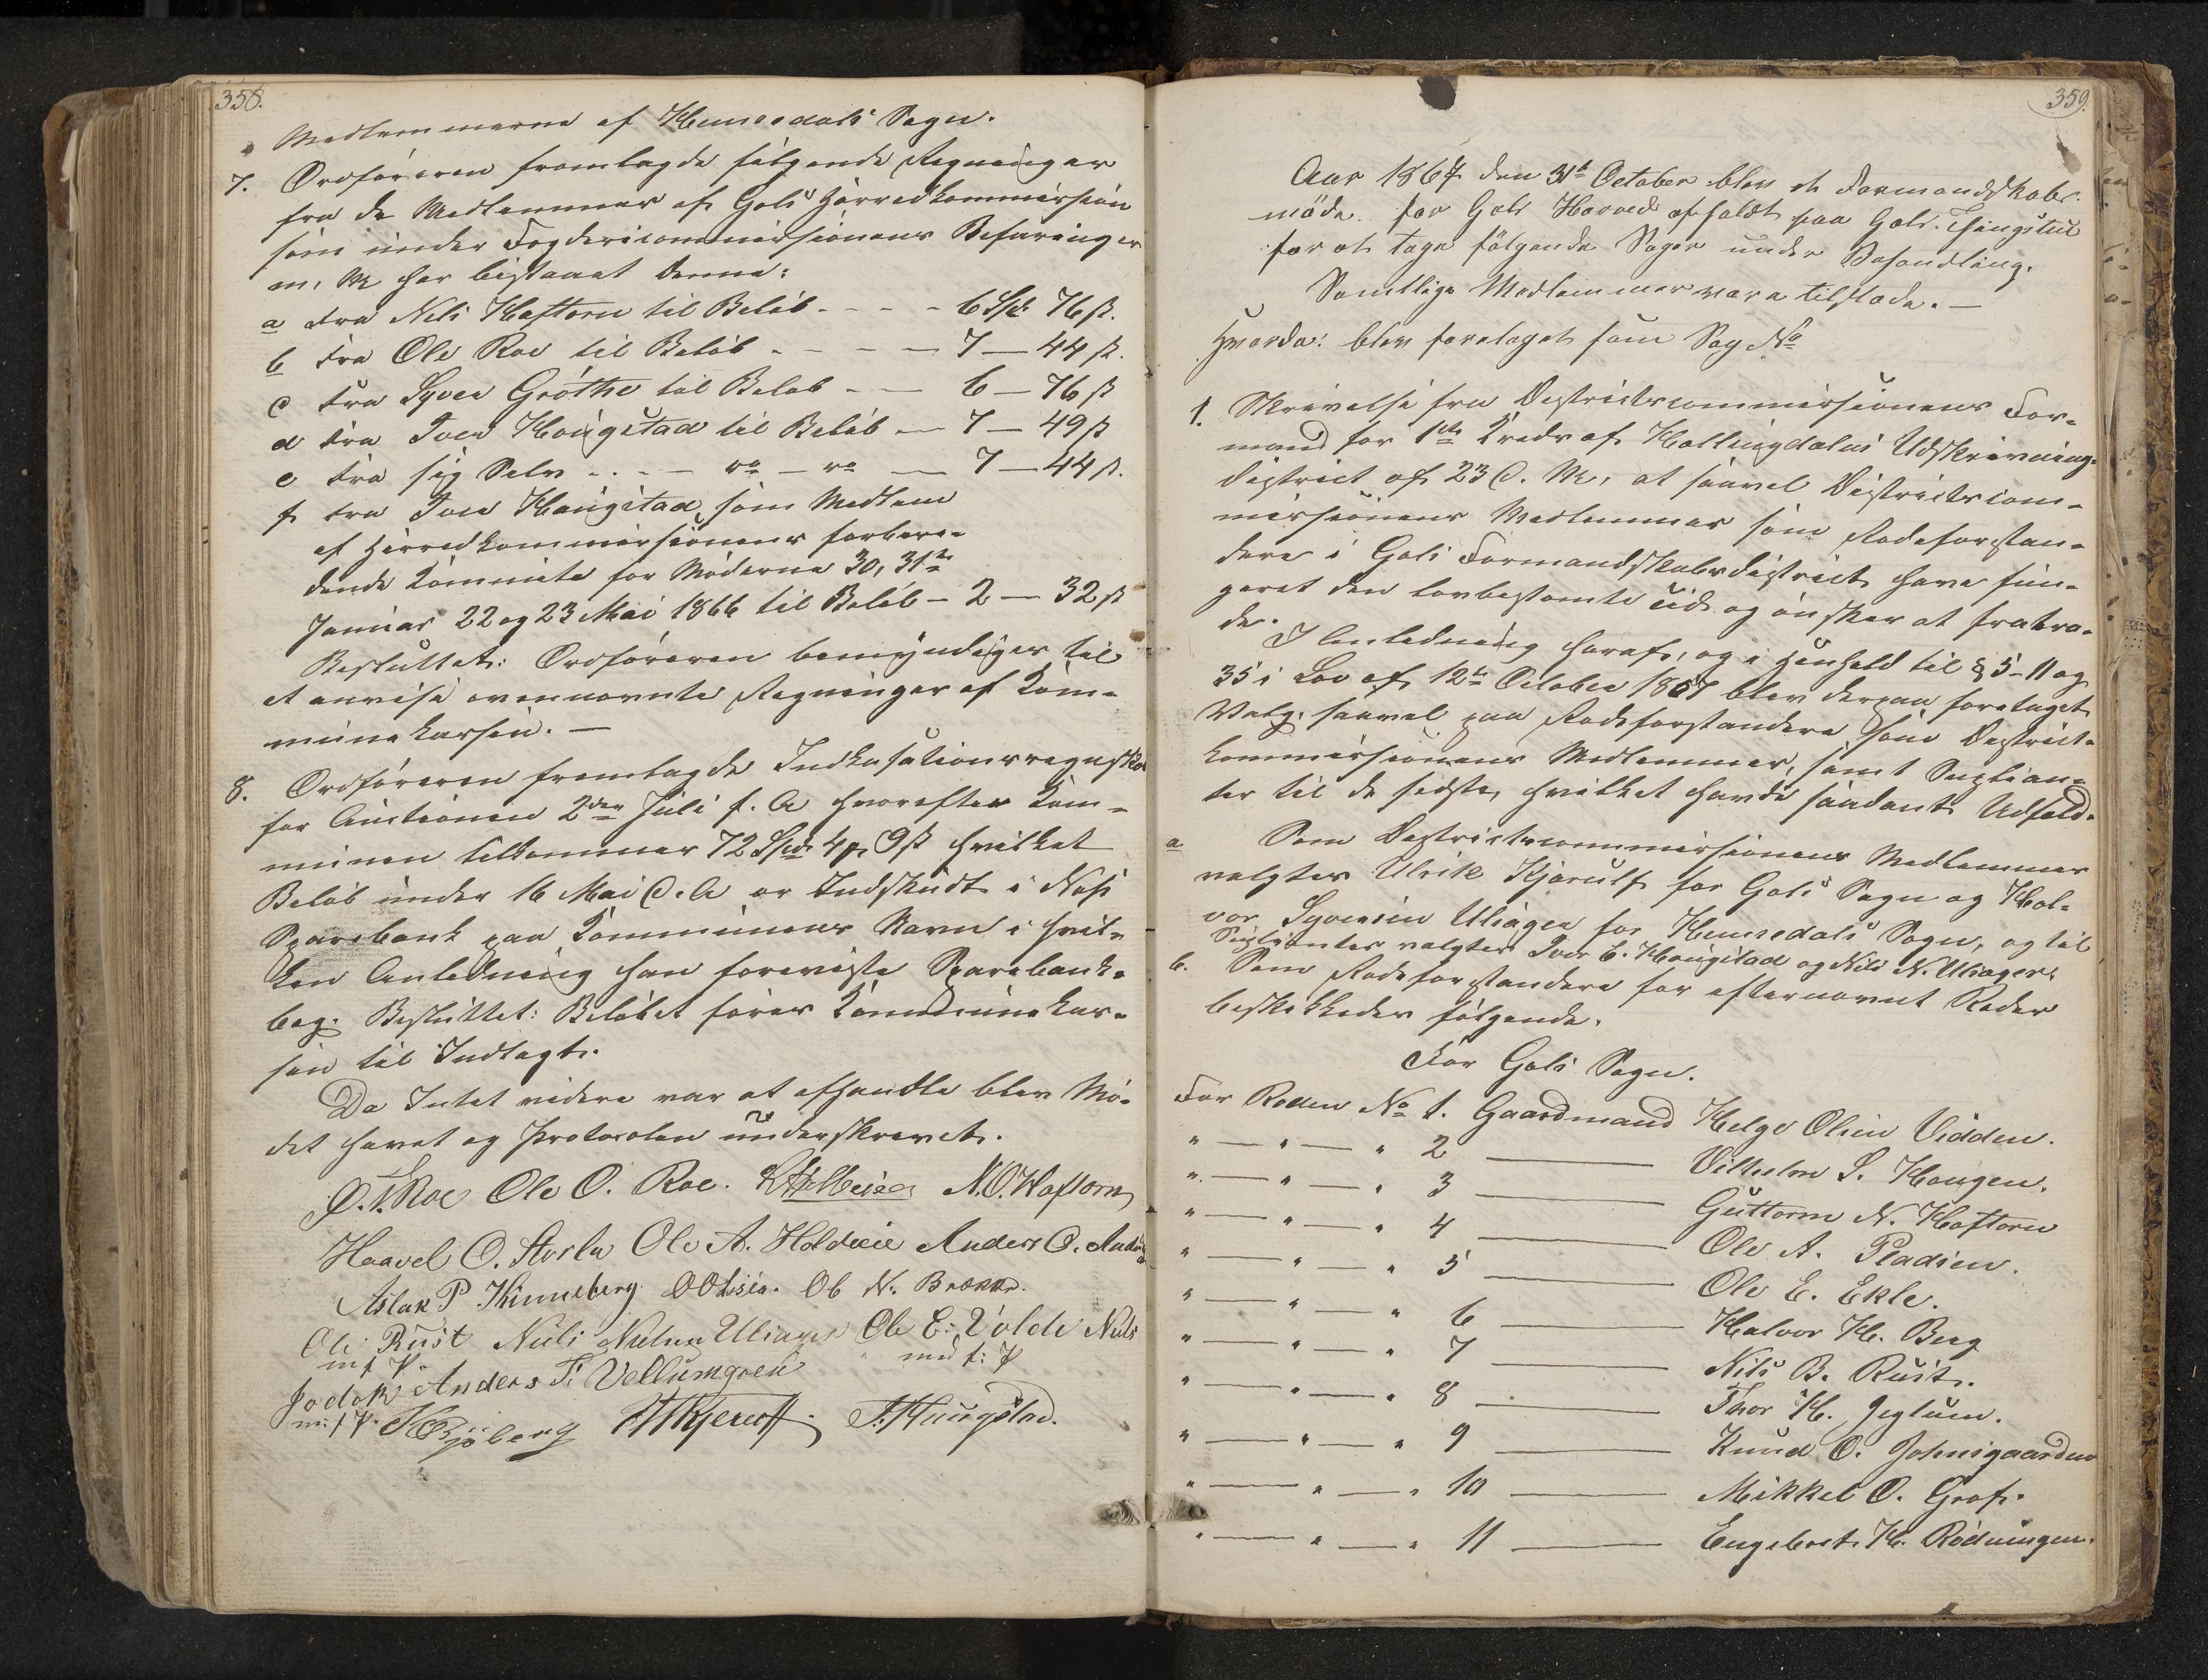 358.
Medlemmerne af Hemsedals Sogn.
7. Ordføreren fremlagde følgende Regninger
fra de Medlemmer af Gols Herredkommission
som under Fogdericommissionens Befaringer
m. M. har bistaaet denne:
a Fra Nils Haftorn til Beløb - - - - 6 Spd 76 ß.
b Fra Ole Roe til Beløb - - - - 7 — 44 ß.
c Fra Syver Grøthe til Beløb - - — 6 — 76 ß
d Fra Iver Hougstad til Beløb — 7 — 49 ß
e Fra sig Selv - - - — — 7 — 44 ß.
f Fra Iver Haugstad, som Medlem
af Herredkommissionens forbere-
dende Committe for Møderne 30, 31te
Januar 22 og 23 Mai 1866 til Beløb - 2 — 32 ß
Besluttet: Ordføreren bemyndiges til
at anvise ovennævnte Regninger af Kom-
munekassen. —
8. Ordføreren fremlagde
for Auctionen 2den Juli f. A hvorefter Kom-
munen tilkommer 72 Spd 4 9 ß hvilket
Beløb under 16 Mai d. A er Indskudt i Næs
Sparebank paa Kommunens Navn i hvil-
ken Anledning han foreviste Sparebank-
bog. Besluttet: Beløbet føres Kommunekas-
sen til Indtægt.
Da Intet videre var at afhandle blev Mø-
det hævet og Protocolen underskrevet.
Roe Ole O. Roe. N. O. Haftorn
Haavel O. Storla Ole A. Anders O.
Aslak P Kinneberg Ole N. Brække.
Ole Rust Nils Nielsen Uliager Ole E. Nils
m f P. med f: P
Anders T. Vellumgren
m: f P. Haugstad.
359.
Aar 1867 den 31te October blev et Formandskabs-
møde for Gols Herred afholdt paa Gols Thingstue
for at tage følgende Sager under Behandling.
Samtlige Medlemmer vare tilstæde. —
Hvorda: blev foretaget som Sag No
1. Skrivelse fra Districtscommissionens For-
mand for 1ste Kreds af Hallingdalens Udskrivnings-
district af 23 d. M., at saavel Districtscom-
missionens Medlemmer som Rodeforstan-
dere i Gols Formandskabsdistrict have fun-
geret den lovbestemte Tid og ønsker at fratræ-
de.
I Anledning heraf, og i Henhold til § 5-11 og
35 i Lov af 12te October 1857 blev derpaa foretaget
Valg, saavel paa Rodeforstandere som District-
kommissionens Medlemmer, samt Suplean-
ter til de sidste, hvilket havde saadant Udfald.
a Som Districtscommissionens Medlemmer
valgtes Ulrik Kjerulf for Gols Sogn og Hal-
vor Syversen Uliager for Hemsedals Sogn, og til
Suplianter valgtes Iver E. Hougstad og Nils N. Uliager.
b. Som Rodeforstandere for efternævnt Roder
beskikkedes følgende.
For Gols Sogn.
For Roden No 1. Gaardmand Helge Olsen Vidden.
" — " — " 2 — Vilhelm S. Hougen.
" — " — " 3 — Guttorm N. Haftorn
" — " — " 4 — Ole A. Pladsen.
" — " — " 5 — Ole E. Ekle.
" — " — " 6 — Halvor H. Berg
" — " — " 7 — Nils B. Rust.
" — " — " 8 — Thor H. Jeglum.
" — " — " 9 — Knud O. Johnsgaarden
" — " — " 10 — Mikkel O. Grøf.
" — " — " 11 — Engebret H. Rødningen.